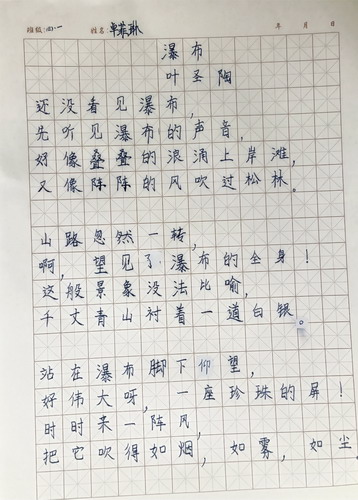 班级:四·一 姓名: 年 月 日
瀑布
叶圣陶
还没看见瀑布,
先听见瀑布的声音,
好像叠叠的浪涌上岸滩,
又像阵阵的风吹过松林。
山路忽然一转,
啊,望见了瀑布的全身!
这般景象没法比喻,
千丈青山衬着一道白银。
站在瀑布脚下仰望,
好伟大呀,一座珍珠的屏!
时时来一阵风,
把它吹得如烟,如雾,如尘。